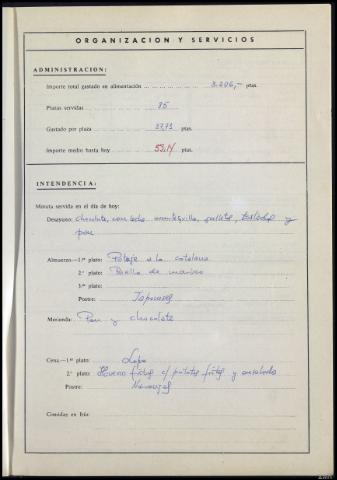 ORGANIZACION Y SERVICIOS
ADMINISTRACION:
Importe total gastado en alimentación ... 3.206,- ptas.
Plazas servidas ... 85
Gastado por plaza ... 37,71 ptas.
Importe medio hasta hoy ... 53,14 ptas.
INTENDENCIA:
Minuta servida en el día de hoy:
Desayuno: chocolate, con leche mantequilla, galletas, tostadas y
pan
Almuerzo.—1.er plato: Potaje a la catalana
2.º plato: Paella de marisco
3.er plato:
Postre:
Merienda: Pan y chocolate
Cena.—1.er plato: Sopa
2.º plato: Huevos fritos c/ patatas fritas y ensalada
Postre: Naranjas
Comidas en frío: